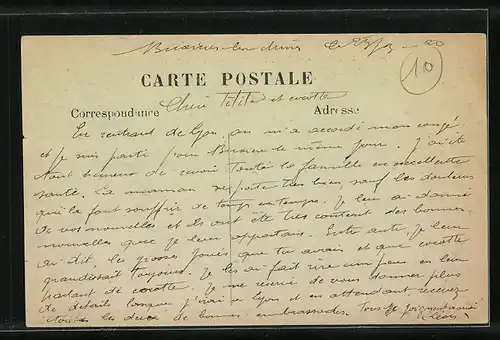 Buxières-les-mines le 23/
10
CARTE POSTALE
Correspondance Adresse
Chère Titite et cocotte
En rentrant de Lyon, on m'a accordé mon congé
et je suis parti pour Buxière le même jour. J'ai été
tout heureux de revoir toute la famille en excellente
santé. La maman se porte très bien, sauf les douleurs
qui la font souffrir de temps en temps. Je leur ai donné
de vos nouvelles et ils ont été très content des bonnes
nouvelles que je leur apportais. Entre autre, je leur
ai dit, les grosses joues que tu avais et que cocotte
grandissait toujours. Je les ai fait rire un peu en leur
parlant de cocotte. Je me réserve de vous donner plus
de détails lorsque j'irai à Lyon et en attendant, recevez
toutes les deux de bonnes embrassades. Tous se joignent à moi
Léon